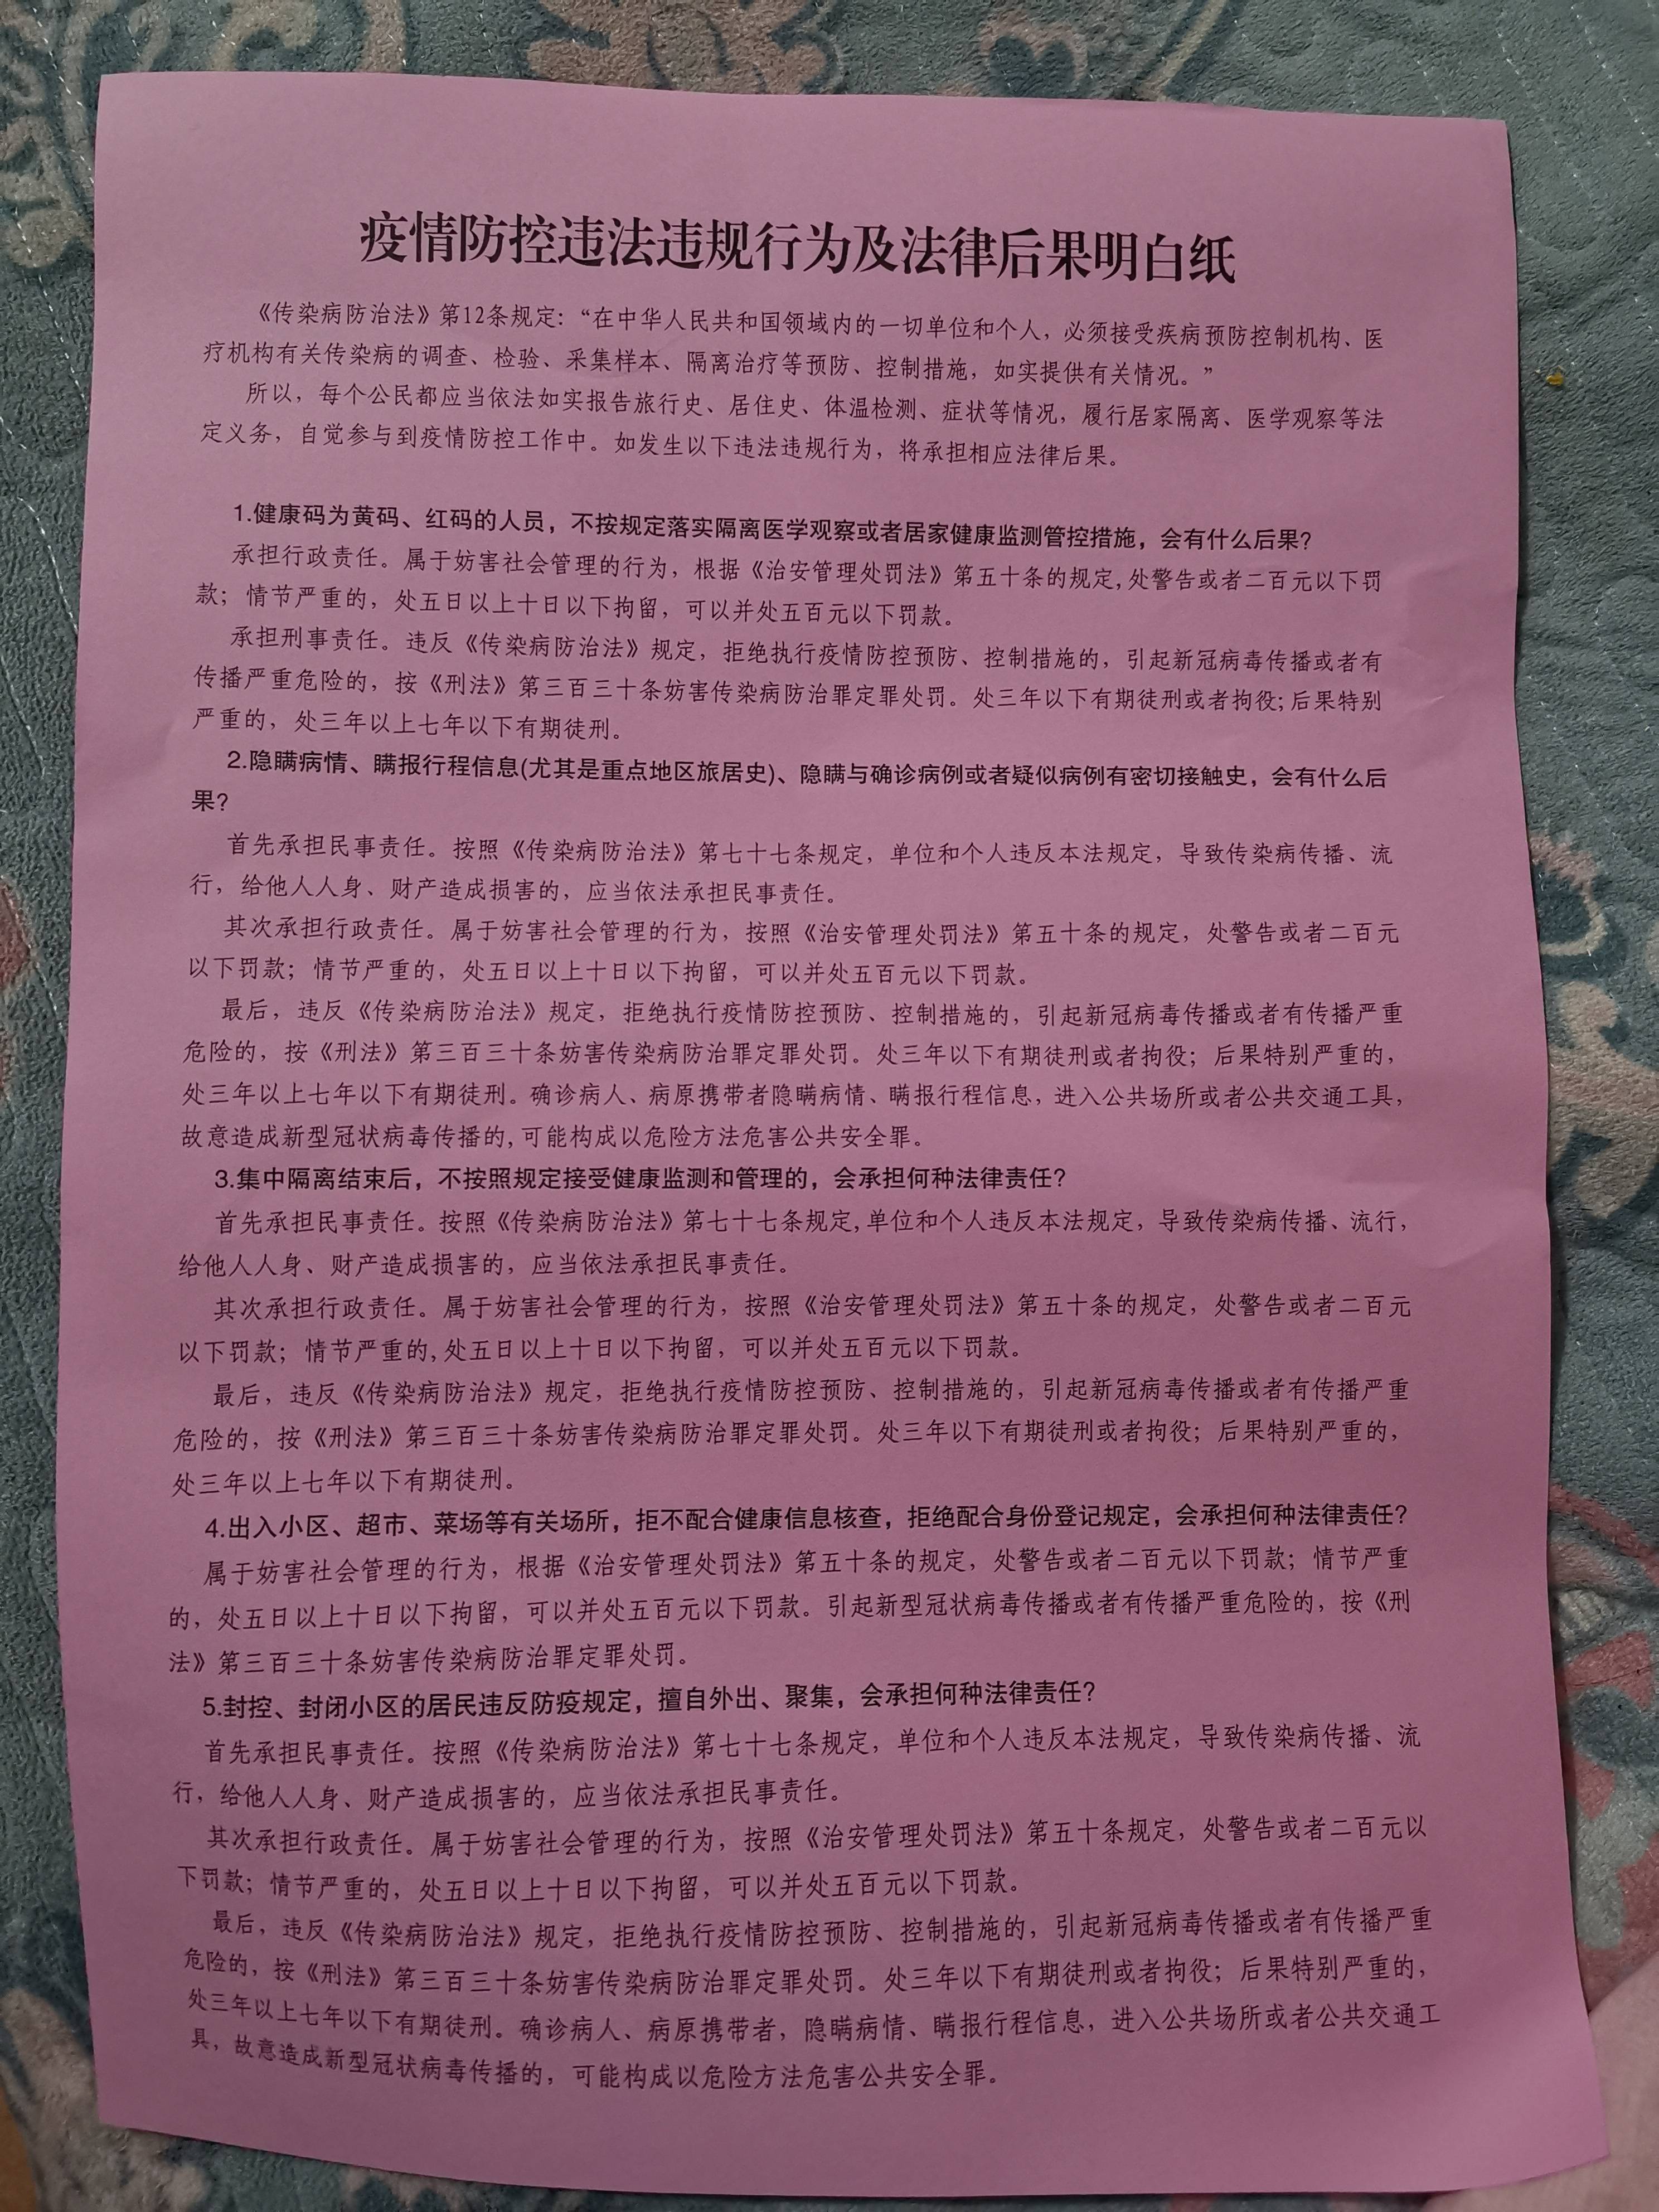 疫情防控违法违规行为及法律后果明白纸
《传染病防治法》第12条规定：“在中华人民共和国领域内的一切单位和个人，必须接受疾病预防控制机构、医
疗机构有关传染病的调查、检验、采集样本、隔离治疗等预防、控制措施，如实提供有关情况。”
所以，每个公民都应当依法如实报告旅行史、居住史、体温检测、症状等情况，履行居家隔离、医学观察等法
定义务，自觉参与到疫情防控工作中。如发生以下违法违规行为，将承担相应法律后果。
1.健康码为黄码、红码的人员，不按规定落实隔离医学观察或者居家健康监测管控措施，会有什么后果？
承担行政责任。属于妨害社会管理的行为，根据《治安管理处罚法》第五十条的规定,处警告或者二百元以下罚
款；情节严重的，处五日以上十日以下拘留，可以并处五百元以下罚款。
承担刑事责任。违反《传染病防治法》规定，拒绝执行疫情防控预防、控制措施的，引起新冠病毒传播或者有
传播严重危险的，按《刑法》第三百三十条妨害传染病防治罪定罪处罚。处三年以下有期徒刑或者拘役;后果特别
严重的，处三年以上七年以下有期徒刑。
2.隐瞒病情、瞒报行程信息(尤其是重点地区旅居史)、隐瞒与确诊病例或者疑似病例有密切接触史，会有什么后
果？
首先承担民事责任。按照《传染病防治法》第七十七条规定，单位和个人违反本法规定，导致传染病传播、流
行，给他人人身、财产造成损害的，应当依法承担民事责任。
其次承担行政责任。属于妨害社会管理的行为，按照《治安管理处罚法》第五十条的规定，处警告或者二百元
以下罚款；情节严重的，处五日以上十日以下拘留，可以并处五百元以下罚款。
最后，违反《传染病防治法》规定，拒绝执行疫情防控预防、控制措施的，引起新冠病毒传播或者有传播严重
危险的，按《刑法》第三百三十条妨害传染病防治罪定罪处罚。处三年以下有期徒刑或者拘役；后果特别严重的，
处三年以上七年以下有期徒刑。确诊病人、病原携带者隐瞒病情、瞒报行程信息，进入公共场所或者公共交通工具，
故意造成新型冠状病毒传播的,可能构成以危险方法危害公共安全罪。
3.集中隔离结束后，不按照规定接受健康监测和管理的，会承担何种法律责任？
首先承担民事责任。按照《传染病防治法》第七十七条规定,单位和个人违反本法规定，导致传染病传播、流行，
给他人人身、财产造成损害的，应当依法承担民事责任。
其次承担行政责任。属于妨害社会管理的行为，按照《治安管理处罚法》第五十条的规定，处警告或者二百元
以下罚款；情节严重的,处五日以上十日以下拘留，可以并处五百元以下罚款。
最后，违反《传染病防治法》规定，拒绝执行疫情防控预防、控制措施的，引起新冠病毒传播或者有传播严重
危险的，按《刑法》第三百三十条妨害传染病防治罪定罪处罚。处三年以下有期徒刑或者拘役；后果特别严重的，
处三年以上七年以下有期徒刑。
4.出入小区、超市、菜场等有关场所，拒不配合健康信息核查，拒绝配合身份登记规定，会承担何种法律责任？
属于妨害社会管理的行为，根据《治安管理处罚法》第五十条的规定，处警告或者二百元以下罚款；情节严重
的，处五日以上十日以下拘留，可以并处五百元以下罚款。引起新型冠状病毒传播或者有传播严重危险的，按《刑
法》第三百三十条妨害传染病防治罪定罪处罚。
5.封控、封闭小区的居民违反防疫规定，擅自外出、聚集，会承担何种法律责任？
首先承担民事责任。按照《传染病防治法》第七十七条规定，单位和个人违反本法规定，导致传染病传播、流
行，给他人人身、财产造成损害的，应当依法承担民事责任。
其次承担行政责任。属于妨害社会管理的行为，按照《治安管理处罚法》第五十条规定，处警告或者二百元以
下罚款；情节严重的，处五日以上十日以下拘留，可以并处五百元以下罚款。
最后，违反《传染病防治法》规定，拒绝执行疫情防控预防、控制措施的，引起新冠病毒传播或者有传播严重
危险的，按《刑法》第三百三十条妨害传染病防治罪定罪处罚。处三年以下有期徒刑或者拘役；后果特别严重的，
处三年以上七年以下有期徒刑。确诊病人、病原携带者，隐瞒病情、瞒报行程信息，进入公共场所或者公共交通工
具，故意造成新型冠状病毒传播的，可能构成以危险方法危害公共安全罪。